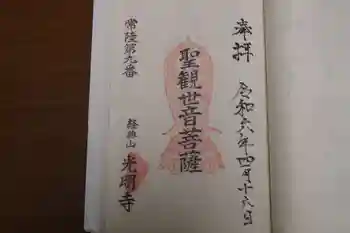 奉拝
令和六年四月十六日
聖観世音菩薩
常陸第九番
経典山
光明寺